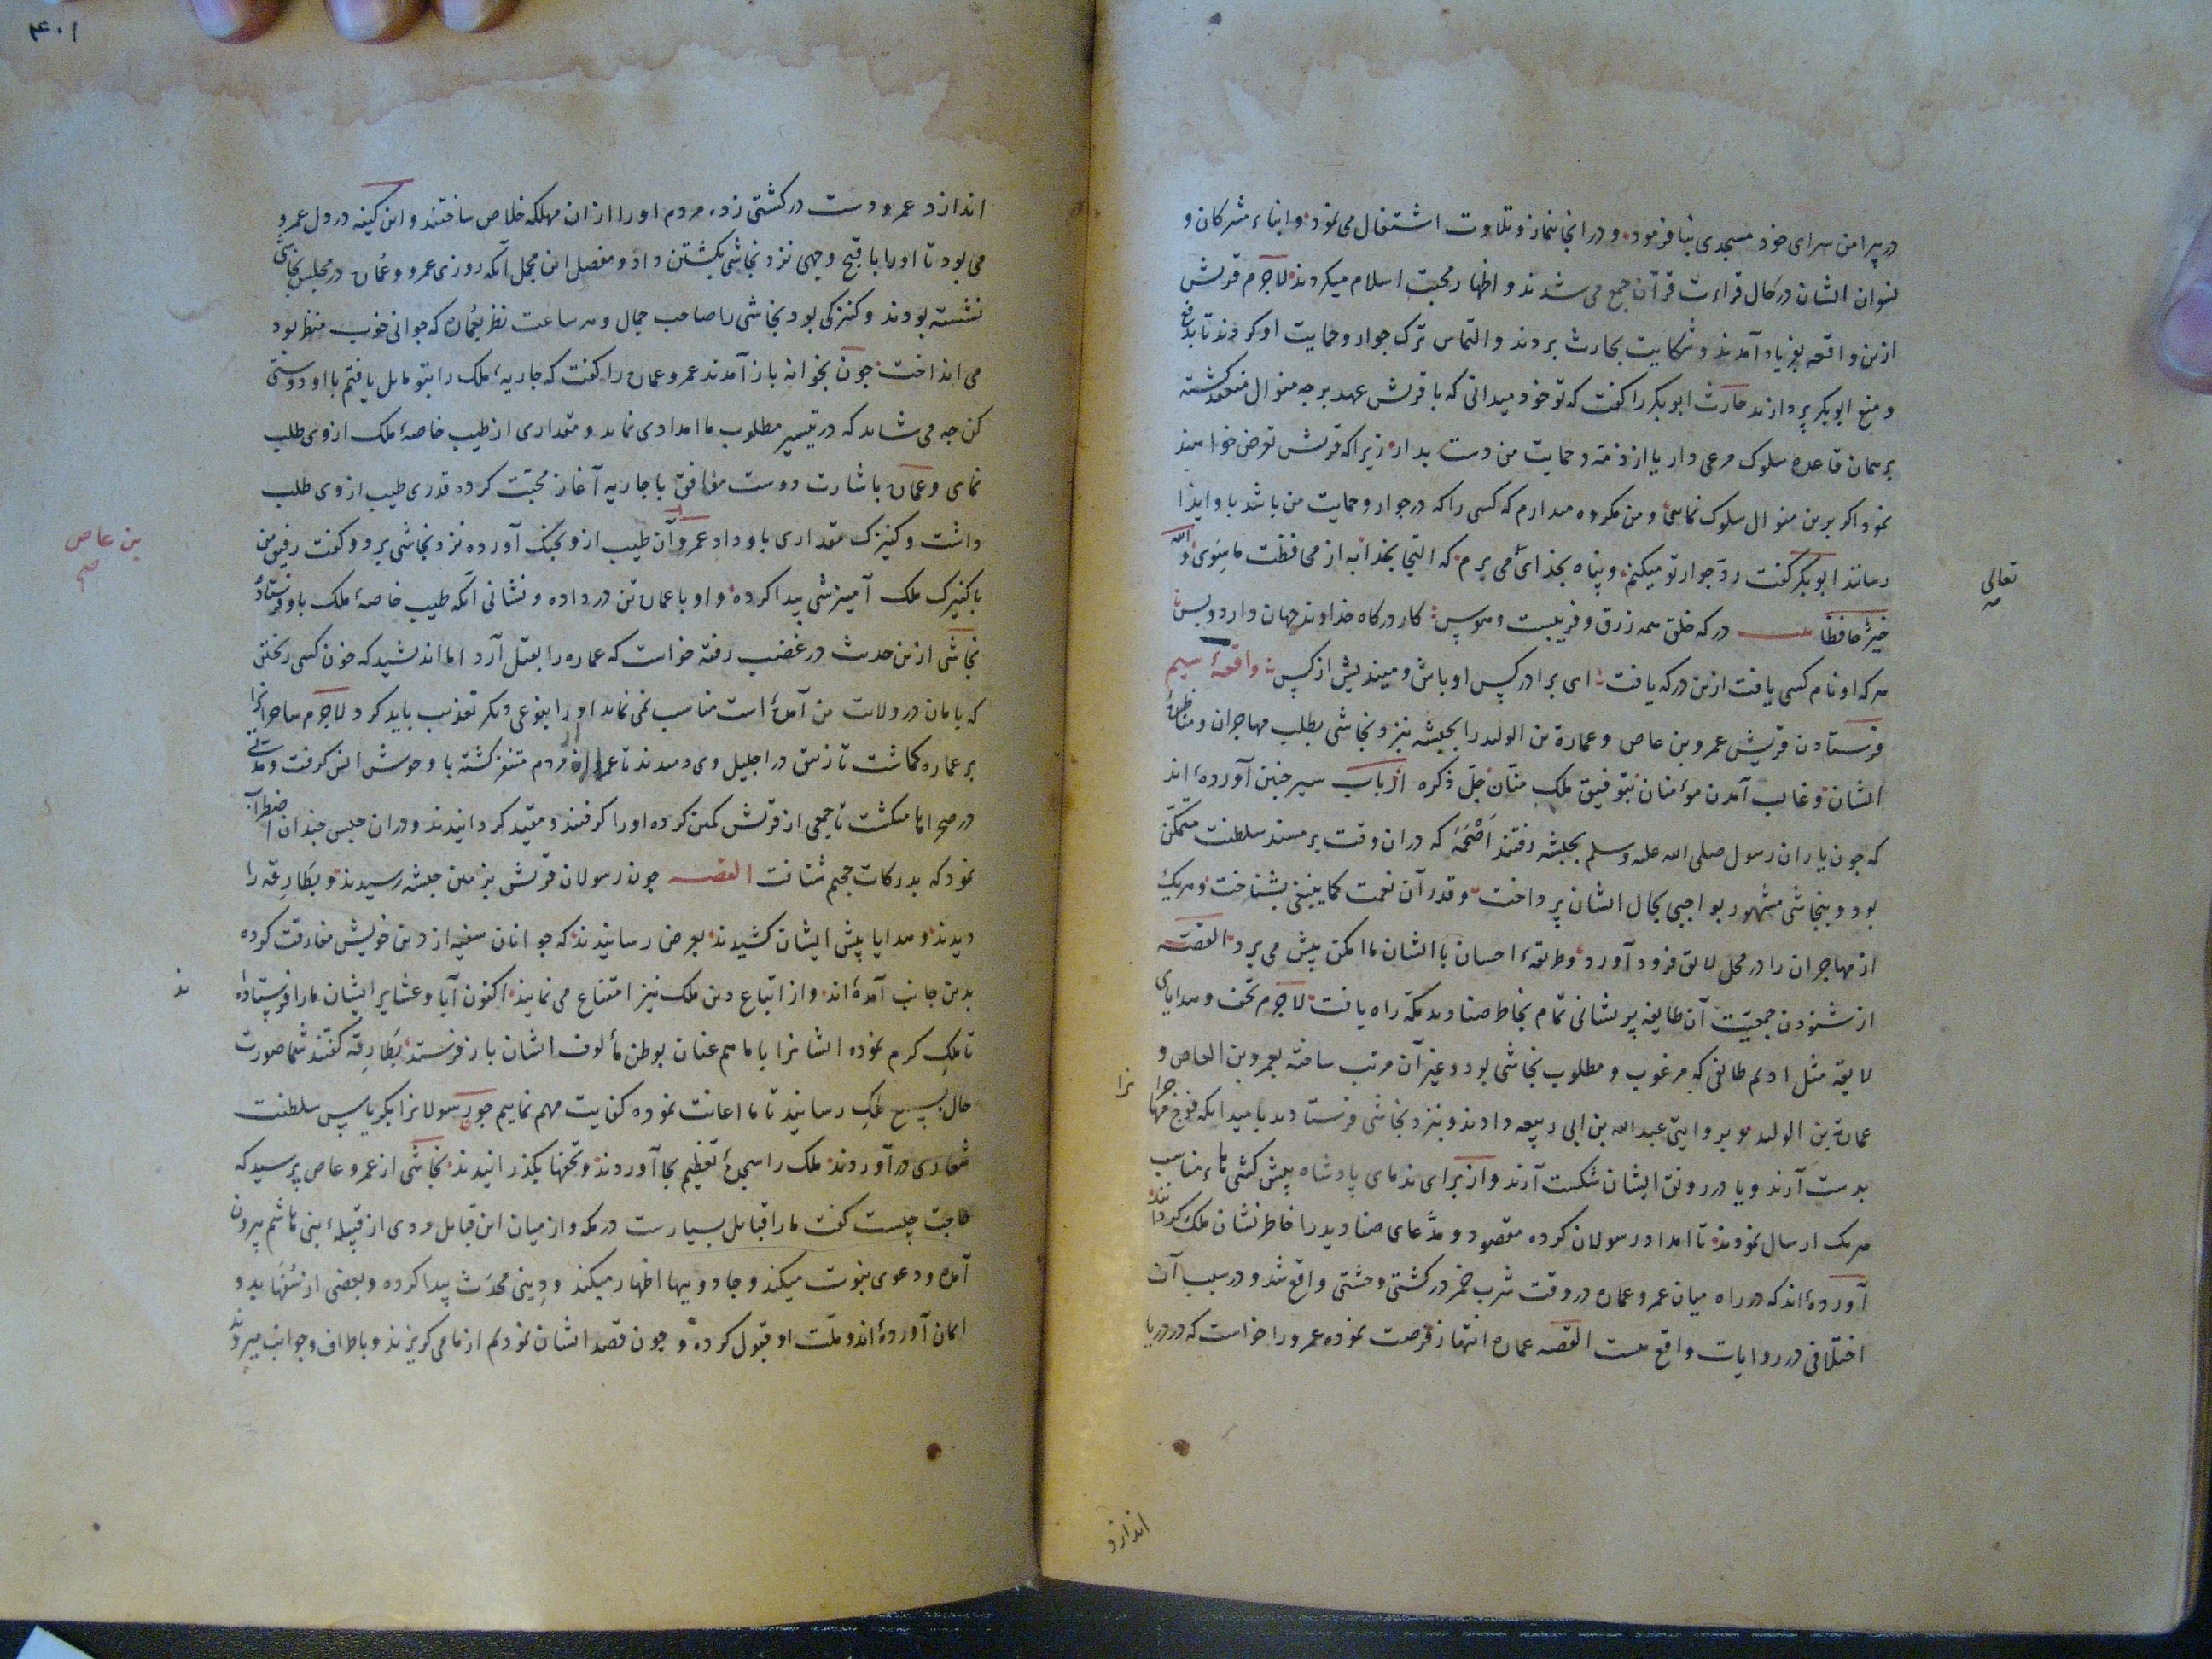 در پیرامن سرای خود مسجدی بنا فرمود و در انجا بنماز و تلاوت اشتغال می نمود و ابناء مشرکان و
نسوان ایشان در حال قراءت قرآن جمع می شدند و اظهار محبت اسلام میکردند لاجرم قریش
ازین واقعه بفریاد آمدند و شکایت بحارث بردند و التماس ترک جوار و حمایت او کردند تا بدفع
و منع ابوبکر پردازند حارث ابوبکر را کفت که تو خود میدانی که با قریش عهد بر چه منوال منعقد کشته
بر همان قاعده سلوک مرعی دار یا از ذمه و حمایت من دست بدار زیرا که قریش تعرض خواهند
نمود اکر برین منوال سلوک نمایی و من مکروه میدارم که کسی را که در جوار و حمایت من باشد باو ایذا
رسانند ابوبکر کفت رد جوار تو میکنم و پناه بخدای می برم که التجا بخدا به از محافظت ماسوی والله
تعالی
خیر حافظا در که خلق همه زرق و فریبست و هوس کار درکاه خداوند جهان دارد و بس
هر که او نام کسی یافت ازین درکه یافت ای برادر کس او باش و میندیش از کس واقعه سیم
فرستادن قریش عمرو بن عاص و عمارة بن الولید را بحبشه نزد نجاشی بطلب مهاجران و مناظره
ایشان و غالب آمدن مؤمنان بتوفیق ملک منان جل ذکره ارباب سیر چنین آورده اند
که چون یاران رسول صلی الله علیه وسلم بحبشه رفتند اصحمه که دران وقت بر مسند سلطنت متمکن
بود و بنجاشی مشهور بواجبی بحال ایشان پرداخت و قدر آن نعمت کما ینبغی بشناخت و هر یک
از مهاجران را در محل لایق فرود آورد و طریقه احسان با ایشان ما امکن پیش می برد القصه
از شنودن جمعیت آن طایفه پریشانی تمام بخاطر صنادید مکه راه یافت لاجرم تحف و هدایای
لایقه مثل ادیم طایفی که مرغوب و مطلوب نجاشی بود و غیر آن مرتب ساخته بعمرو بن العاص و
عمارة بن الولید و بروایتی عبدالله بن ابی ربیعه دادند و بنزد نجاشی فرستادند بامید آنکه فوج مهاجرا
نرا
بدست آرند و یا در رونق ایشان شکست آرند و از برای ندمای پادشاه پیش کشی مناسب
هر یک ارسال نمودند تا امداد رسولان کرده مقصود و مدعای صنادید را خاطر نشان ملک کردانند
آورده اند که در راه میان عمرو و عماره در وقت شرب خمر در کشتی وحشتی واقع شد و در سبب آن
اختلافی در روایات واقع هست القصه عماره انتهاز فرصت نموده عمرو را خواست که در دریا
اندازد
۴۰۱
اندازد عمرو دست در کشتی زده مردم او را ازان مهلکه خلاص ساختند و این کینه در دل عمرو
می بود تا او را باقبح وجهی نزد نجاشی بکشتن داد و مفصل این مجمل آنکه روزی عمرو و عماره در مجلس نجاشی
نشسته بودند و کنیزکی بود نجاشی را صاحب جمال و هر ساعت نظر بعماره که جوانی خوب منظر بود
می انداخت چون بخانه باز آمدند عمرو عماره را کفت که جاریه ملک را بتو مایل یافتم با او دوستی
کن چه می شاید که در تیسیر مطلوب ما امدادی نماید و مقداری از طیب خاصه ملک از وی طلب
نمای و عماره باشارت دوست موافق با جاریه آغاز محبت کرده قدری طیب از وی طلب
داشت و کنیزک مقداری باو داد عمرو آن طیب ازو بجنک آورده نزد نجاشی برد و کفت رفیق من
بن عاص
صح
با کنیزک ملک آمیزشی پیدا کرده و او با عماره تن در داده و نشانی آنکه طیب خاصه ملک باو فرستاده
نجاشی ازین حدیث در غضب رفته خواست که عماره را بقتل آرد اما اندیشید که خون کسی ریختن
که بامان در ولایت من آمده است مناسب نمی نماید او را بنوعی دیکر تعذیب باید کرد لاجرم ساحرانرا
بر عماره کماشت تا زیبق در احلیل وی دمیدند تا عماره از مردم متنفر کشته با وحوش انس کرفت و مدتی
در صحراها میکشت تا جمعی از قریش کمین کرده او را کرفتند و مقید کردانیدند و دران حبس چندان اضطراب
نمود که بدرکات جحیم شتافت القصه چون رسولان قریش بزمین حبشه رسیدند و بطارقه را
دیدند و هدایا پیش ایشان کشیدند بعرض رسانیدند که جوانان سفیه از دین خویش مفارقت کرده
بدین جانب آمده اند و از اتباع دین ملک نیز امتناع می نمایند اکنون آبا و عشایر ایشان ما را فرستاده
ند
تا ملک کرم نموده ایشانرا با ما هم عنان بوطن مألوف ایشان باز فرستد بطارقه کفتند شما صورت
حال بسمع ملک رسانید تا ما اعانت نموده کفایت مهم نماییم چون رسولانرا بکریاس سلطنت
شعاری در آوردند ملک را سجده تعظیم بجا آوردند و تحفها بکذرانیدند نجاشی از عمرو عاص پرسید که
حاجت چیست کفت ما را قبایل بسیارست در مکه و از میان این قبایل مردی از قبیله بنی هاشم بیرون
آمده و دعوی نبوت میکند و جادوییها اظهار میکند و دینی محدث پیدا کرده و بعضی از سفها بدو
ایمان آورده اند و ملت او قبول کرده و چون قصد ایشان نمودیم از ما می کریزند و باطراف و جوانب میروند